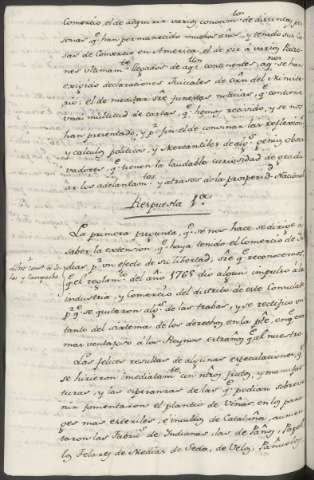 Comercio, el de adquirir varios conocim.tos de distintas per
sonas q.e han permanecido muchos años, y tenido sus Ca
sas de Comercio en America, el de oir á varios Patro
nes ultimam.te llegados de aq.l continente, aq.nes se han
exigido declaraciones Judiciales de orn. del Minist
rio; el de meditar las funestas noticias, q.e contiene
una multitud de cartas, q.e hemos recivido, y se nos
han presentado, y p.r fin el de convinar las reflexion
y calculos politicos, y Mercantiles de alg.s genios obser
vadores, q.e tienen la laudable curiosidad de gradu
ar los adelantam.tos y atrasos de la prosperid.d Nacional
Respuesta 1.a
La primera pregunta, q.e se nos hace se dirige á
saber la extension q.e haya tenido el Comercio de In
dias p.r un efecto de su libertad, sre q.e reconocemos,
q.e el reglam.to del año 1765 dio algun impulso á la
industria, y Comercio del distrito de este Consulado
p.r q.e se quitaron alg.s de las trabas, y se rectificó un
tanto el sistema de los derechos en la p.te, en q.e era
mas ventajoso á los Reynos extraños q.e el nuestro.
Las felices resultas de algunas especulaciones, q.e
se hicieron imediatam.te con nros frutos, y manufac
turas, y las esperanzas de las q.e podian sobreve
nir fomentaron el plantio de Viñas en los para
ges mas esteriles, é incultos de Cataluña, aumen
taron las Fabric.s de Indianas, las de Paños, Papel
los Telares de Medias de Seda, de Velos, Pañuelos